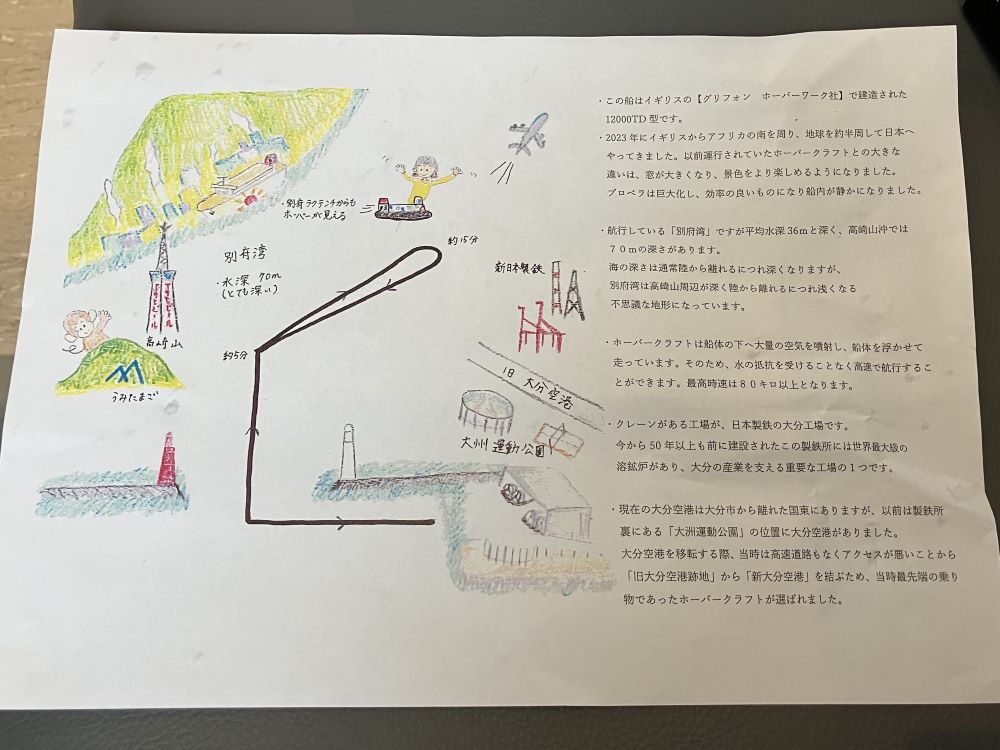 ・別府ラクテンチからも
ホバーが見える
約15分
別府湾
・水深 70m
(とても深い)
高崎山
約5分
うみたまご
新日本製鉄
旧 大分空港
大州運動公園
・この船はイギリスの【グリフォン ホーバーワーク社】で建造された
12000TD 型です。
・2023 年にイギリスからアフリカの南を周り、地球を約半周して日本へ
やってきました。以前運行されていたホーバークラフトとの大きな
違いは、窓が大きくなり、景色をより楽しめるようになりました。
プロペラは巨大化し、効率の良いものになり船内が静かになりました。
・航行している「別府湾」ですが平均水深 36mと深く、高崎山沖では
70mの深さがあります。
海の深さは通常陸から離れるにつれ深くなりますが、
別府湾は高崎山周辺が深く陸から離れるにつれ浅くなる
不思議な地形になっています。
・ホーバークラフトは船体の下へ大量の空気を噴射し、船体を浮かせて
走っています。そのため、水の抵抗を受けることなく高速で航行するこ
とができます。最高時速は80キロ以上となります。
・クレーンがある工場が、日本製鉄の大分工場です。
今から 50 年以上も前に建設されたこの製鉄所には世界最大級の
溶鉱炉があり、大分の産業を支える重要な工場の1つです。
・現在の大分空港は大分市から離れた国東にありますが、以前は製鉄所
裏にある「大洲運動公園」の位置に大分空港がありました。
大分空港を移転する際、当時は高速道路もなくアクセスが悪いことから
「旧大分空港跡地」から「新大分空港」を結ぶため、当時最先端の乗り
物であったホーバークラフトが選ばれました。